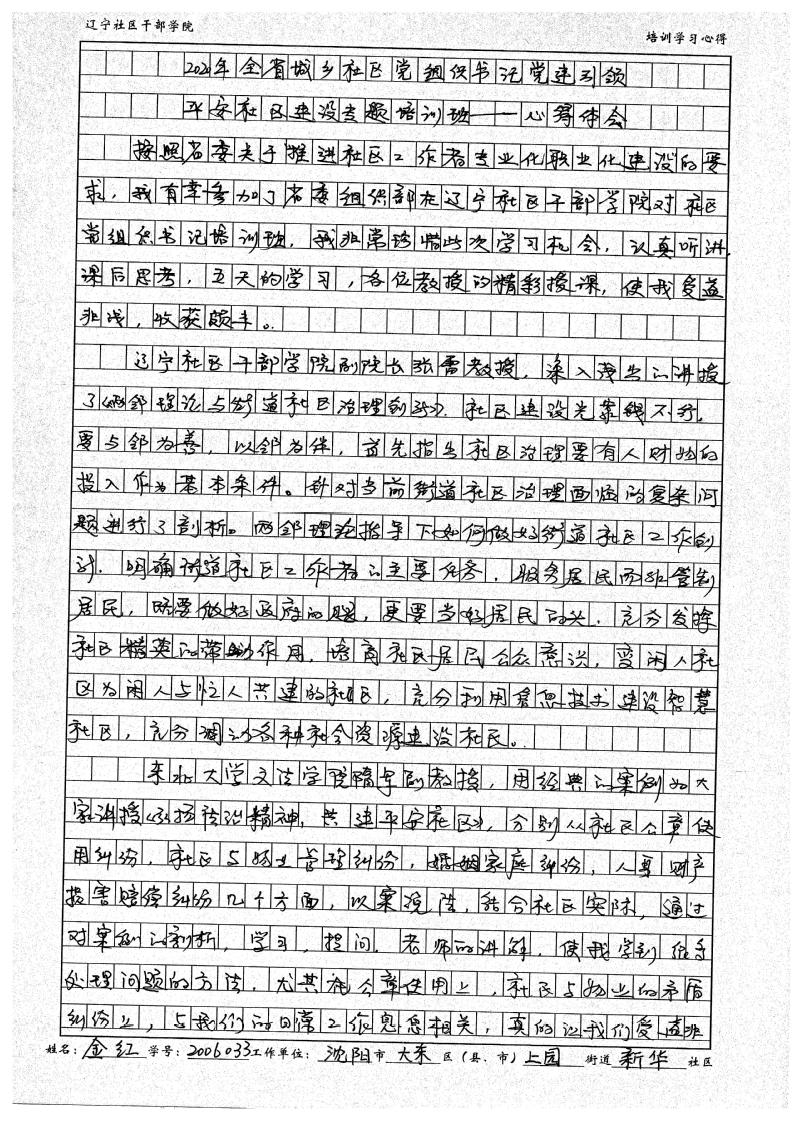 辽宁社区干部学院
培训学习心得
2021年全省城乡社区党组织书记党建引领
平安社区建设专题培训班——心得体会
按照省委关于"推进社区工作者专业化职业化建设的要
求,我有幸参加了省委组织部在辽宁社区干部学院对社区
党组织书记培训班,我非常珍惜此次学习机会,认真听讲,
课后思考,五天的学习,各位教授的精彩授课,使我受益
非浅,收获颇丰。
辽宁社区干部学院副院长张雷教授,深入浅出的讲授
了《两邻理论与街道社区治理创新》,社区建设光靠钱不行,
要与邻为善,以邻为伴,首先指出社区治理要有人财物的
投入作为基本条件。针对当前街道社区治理面临的复杂问
题进行了剖析。两邻理论指导下如何做好街道社区工作创
新,明确街道社区工作者的主要任务,服务居民而非管制
居民,既要做好政府的腿,更要当好居民的头,充分发挥
社区精英的带动作用,培育社区居民公众意识,变闲人社
区为闲人与忙人共建的社区,充分利用信息技术建设智慧
社区,充分调动各种社会资源建设社区。
东北大学文法学院隋军副教授,用经典的案例为大
家讲授《弘扬法治精神,共建平安社区》,分别从社区公章使
用纠纷,社区与物业管理纠纷,婚姻家庭纠纷,人身财产
损害赔偿纠纷几个方面,以案说法,结合社区实际,通过
对案例的剖析,学习,提问,老师的讲解,使我学到很多
处理问题的方法,尤其在公章使用上,社区与物业的矛盾
纠纷上,与我们的日常工作息息相关,真的让我们受益非
姓名:金红 学号:2006033 工作单位:沈阳市 大东 区(县、市)上园 街道 新华 社区